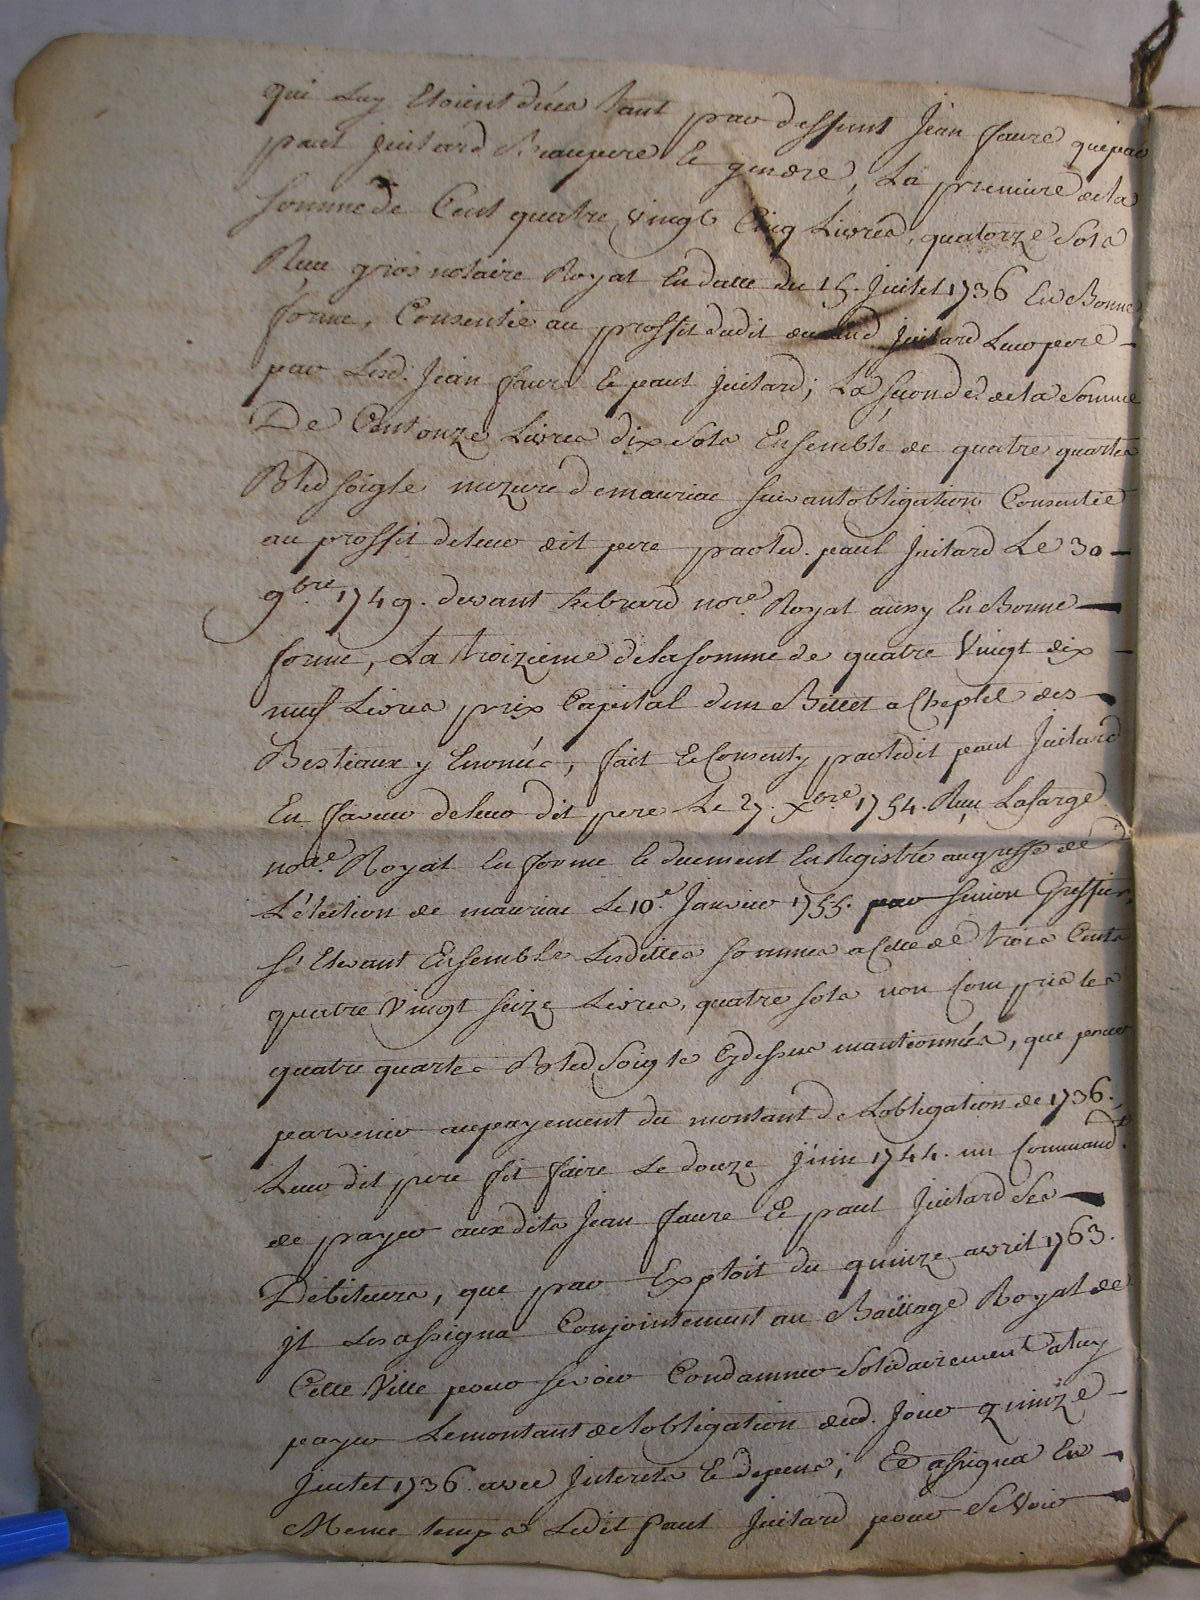 qui Luy Etoient düea tant par deffunt Jean faure que par
paul Juilard Beaupere Et gendre, La premiere de la
Somme de Cent quatre vingt Cinq Livres, quatorze Sols
Reçu gros notaire Royal En datte du 15. Juilet 1736 En Bonne
forme, Consentie au proffit dudit Juilard Leur pere
par Lesd. Jean faure Et paul Juilard; La seconde de la Somme
De Cent onze Livres dix Sols Ensemble de quatre quartes
Bled Soigle mezure de mauriac suivant obligation Consentie
au proffit de leur dit pere par led. paul Juilard Le 30
9bre. 1749. devant nore. Royal aussy En Bonne
forme, La troizieme de la somme de quatre Vingt dix
neuf Livres prix Capital dun Billet a Cheptel des
Bestiaux y Enoncés, fait Et Consenty par ledit paul Juilard
En faveur de leur dit pere Le 27. Xbre. 1754. Reçu Lafarge
nore. Royal En forme Et duement En Registré au greffe de
L'élection de mauriac Le 10e. Janvier 1755. par Simon Greffier,
S'Elevant Ensemble Lesdittes Sommes a Celle de trois Cents
quatre Vingt Seize Livres, quatre Sols non Compris les
quatre quartes Bled Soigle Cy dessus mantionnées, que pour
parvenir au payement du montant de Lobligation de 1736.
Leur dit pere fit faire Le douze juin 1744. un Command.t
de payer aux dits Jean faure Et paul Juilard Ses
Debiteurs, que par Exploit du quinze avril 1763.
jl Les assigna Conjointement au Bailliage Royal de
Cette Ville pour Se voir Condamner Solidairement a luy
payer Le montant de lobligation dud. Jour quinze
Juilet 1736 avec Jnterets Et depens; Et assigna En
Meme temps Ledit Paul Juilard pour Se Voir